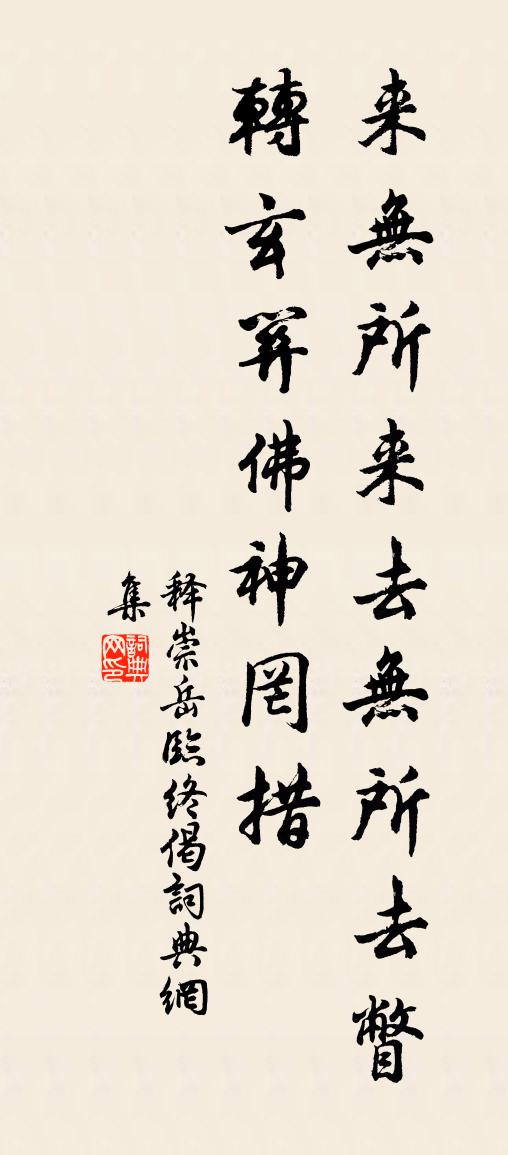 来無所来去無所去瞥
轉玄関佛神罔措
释崇岳臨终偈詞典網
集
詞典
网印